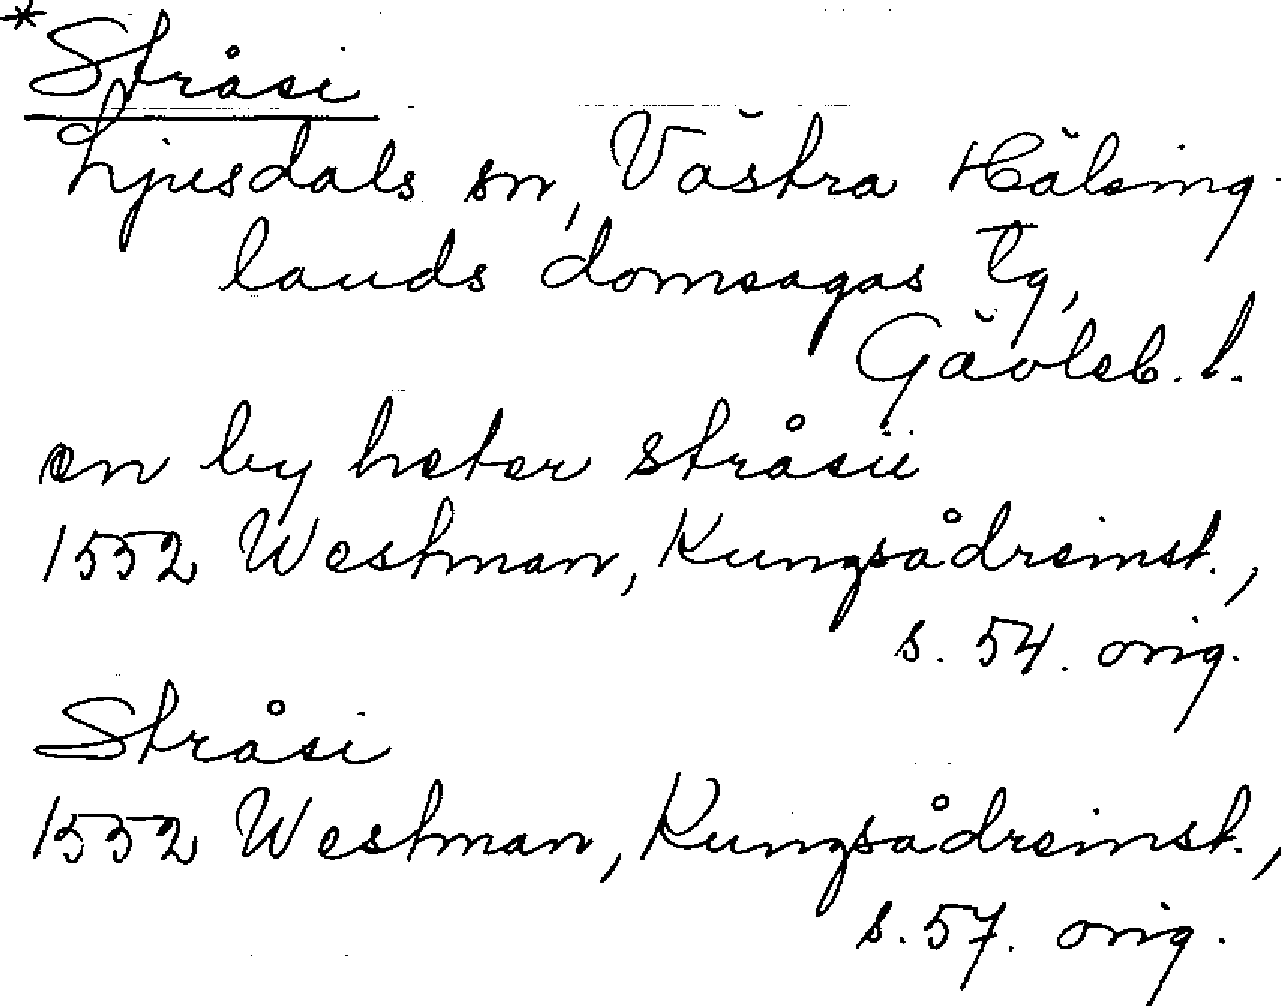 *Stråsi
Ljusdals sn, Västra Hälsing-
lands domsagas tg,
Gävleb. l.
en by heter stråsii
1552 Westman, Kungsådreinst.,
s. 54. orig.
Stråsi
1552 Westman, Kungsådreinst.,
s. 57. orig.